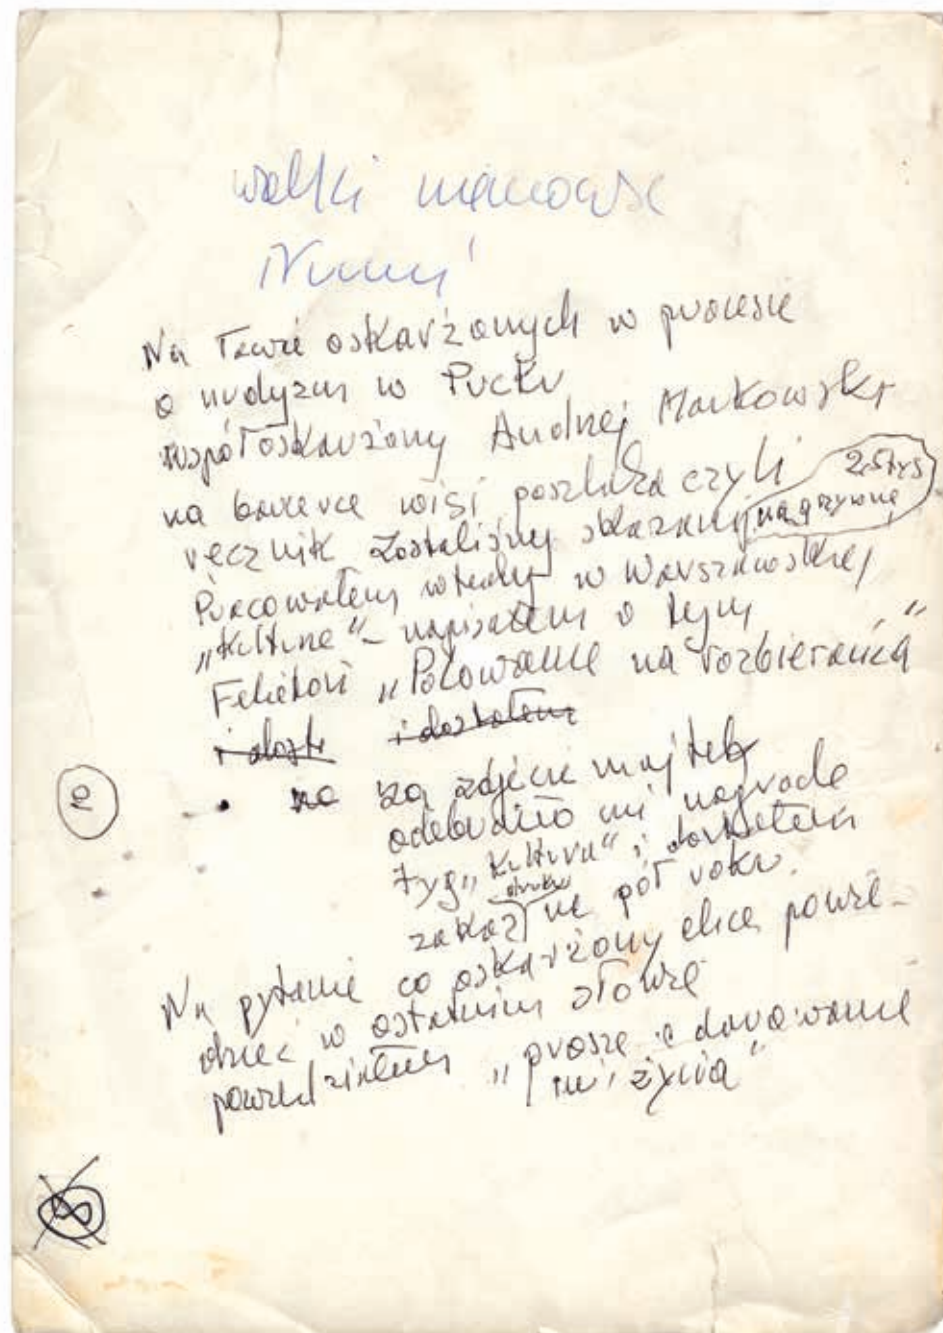 walki
Na ławie oskarżonych w procesie
o nudyzm w Pucku
współoskarżony Andrzej Markowski
na barierce wisi poszlaka czyli
ręcznik zostaliśmy skazani na grzywnę 2.5 tys
Pracowałem wtedy w Warszawskiej
„Kulturze" – napisałem o tym
Felieton „Polowanie na rozbierańca"
i doste i dostałem
za zdjęcie majtek
odebrało mi nagrodę
tyg „Kultura" i dostałem
zakaz druku na pół roku.
Na pytanie co oskarżony chce powie-
dzieć w ostatnim słowie
powiedziałem „proszę o darowanie
mi życia"
2
8